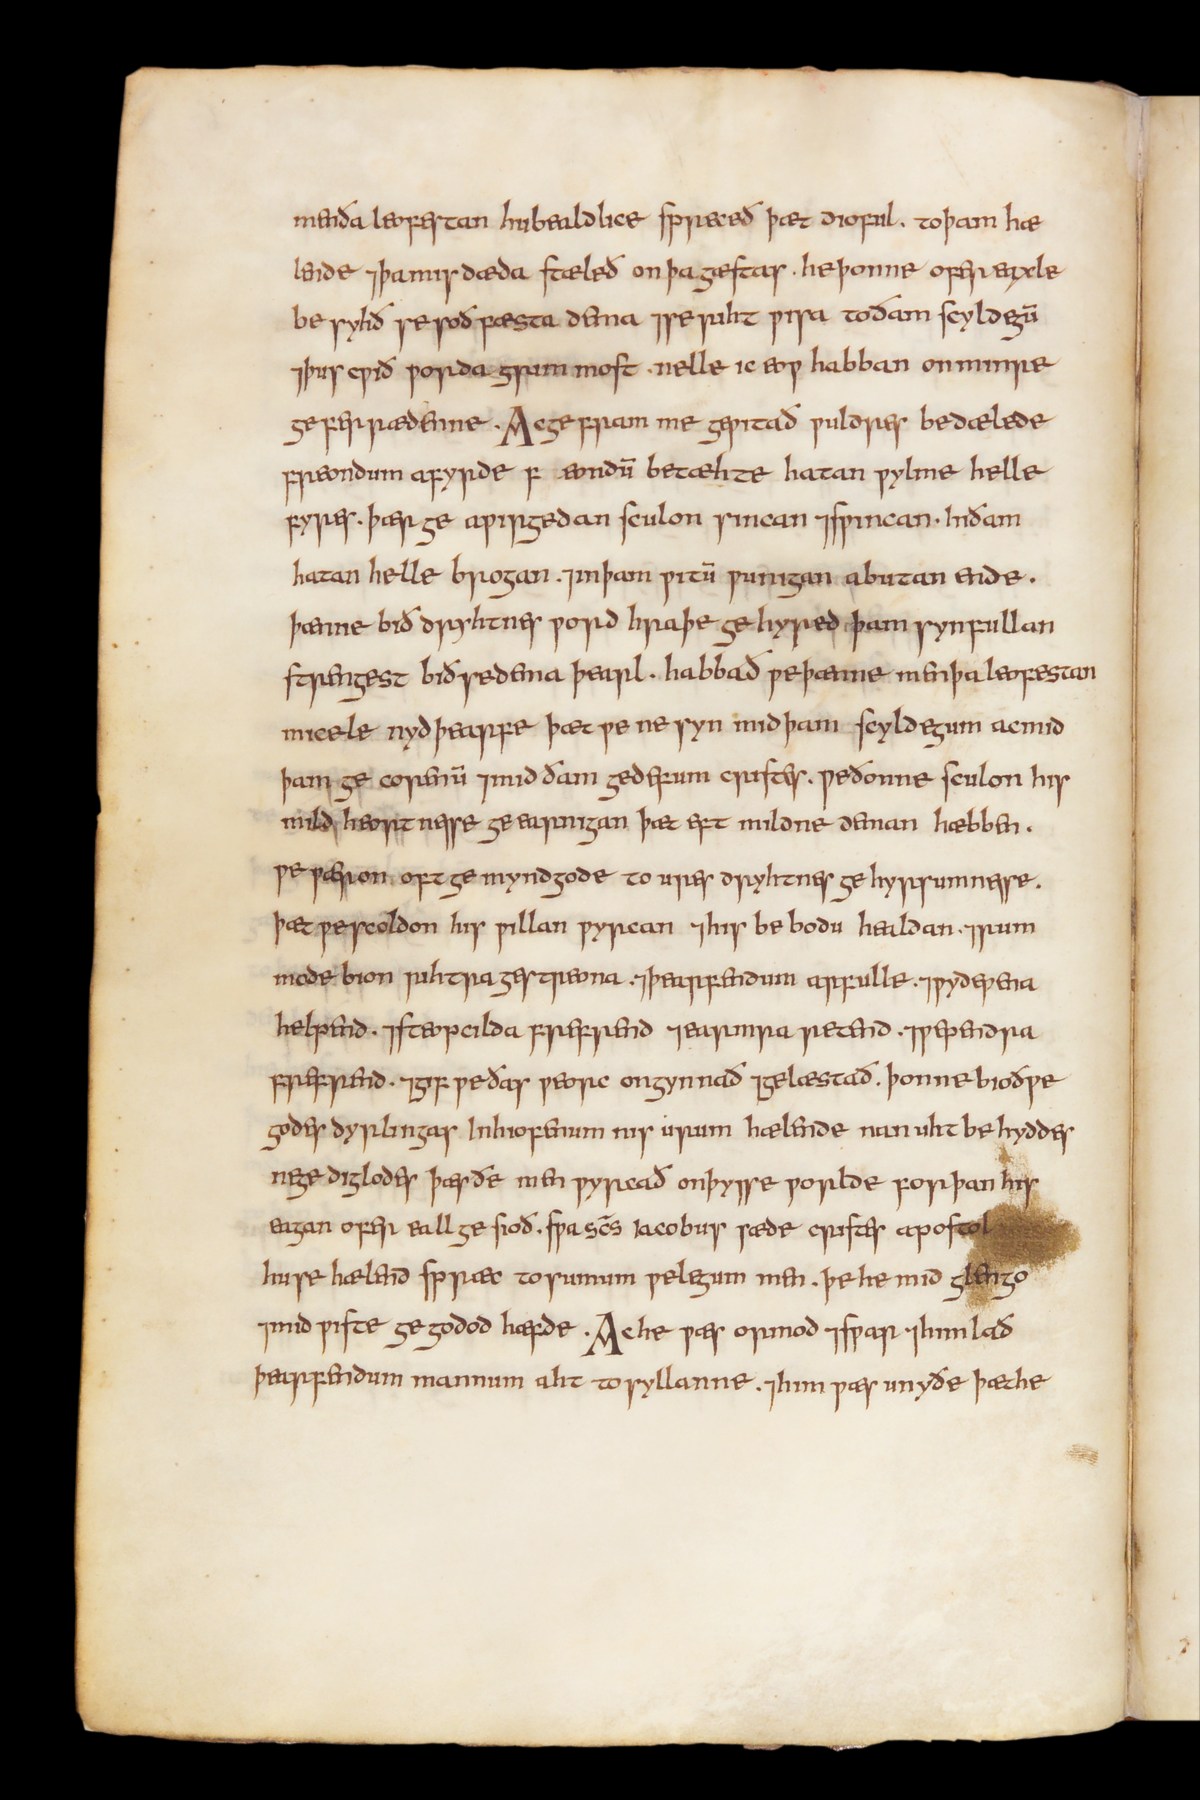 men ða leofestan hu bealdlice spræceð þæt dioful . to þam hæ
lende ⁊ þa mis dæda stæleð on þa gæstas . he þonne ofer eaxle
be syhð se soðfæsta dema ⁊ se riht wisa to ðam scyldegū
⁊ þus cwið worda grimmost . nelle ic eow habban on minre
geferrædenne . Ac ge fram me gewitað wuldres bedælede
freondum afyrde f eondū betæhte hatan wylme helle
fyres . þær ge awirgedan sculon sincan ⁊ swincan . In ðam
hatan helle brogan . ⁊ in þam witū wunigan a butan ende .
þænne bið dryhtnes word hraþe ge hyred þam synfullan
strengest bið se dema þearl . habbað we þænne men þa leofestan
micele nydþearfe þæt we ne syn mid þam scyldegum ac mid
þam ge corenū ⁊ mid ðam gedefum cristes . we ðonne sculon his
mildheortnesse ge earnigan þæt eft mildne deman hæbben .
we wæron oft ge myndgode to ures dryhtnes ge hyrsumnesse .
þæt we sceoldon his willan wyrcan ⁊ his be bodu healdan . ⁊ rum
mode bion rihtra gestreona . ⁊ þearfendum arfulle . ⁊ wydewena
helpend . ⁊ steopcilda frefrend ⁊ earmra retend . ⁊ wependra
frefrend . ⁊ gif we ðas weorc ongynnað ⁊ gelæstað . þonne bioð we
godes dyrlingas In hiofenum nis urum hælende nan uht be hyddes
ne ge digledes þæs ðe men wyrcað on þysse worlde for þan his
eagan ofer eall ge sioð . swa sc̄s Iacobus sæde cristes apostol
hu se hælend spræc to sumum welegum men . þe he mid glengo
⁊ mid wiste ge godod hæfde . Ac he wæs ormod ⁊ swar ⁊ him lað
þearfendum mannum aht to syllanne . ⁊ him wæs unyðe þæt he